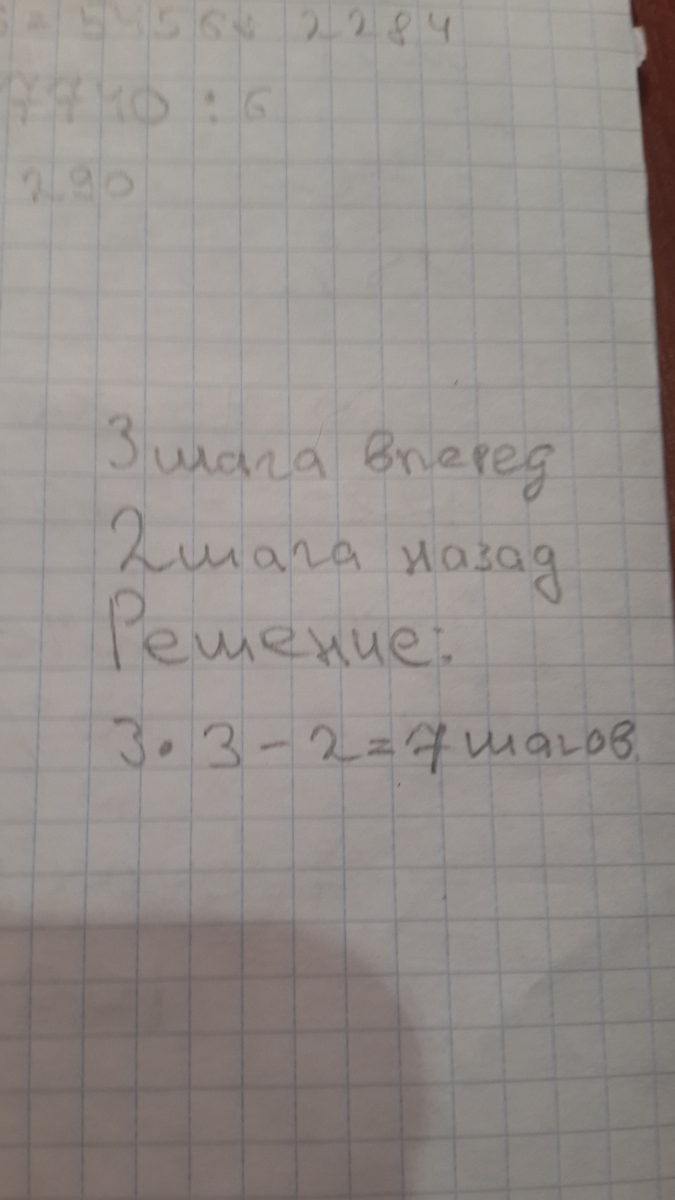 = 54564 2284
7710 : 6
290
3 шага вперед
2 шага назад
Решение:
3 · 3 - 2 = 7 шагов